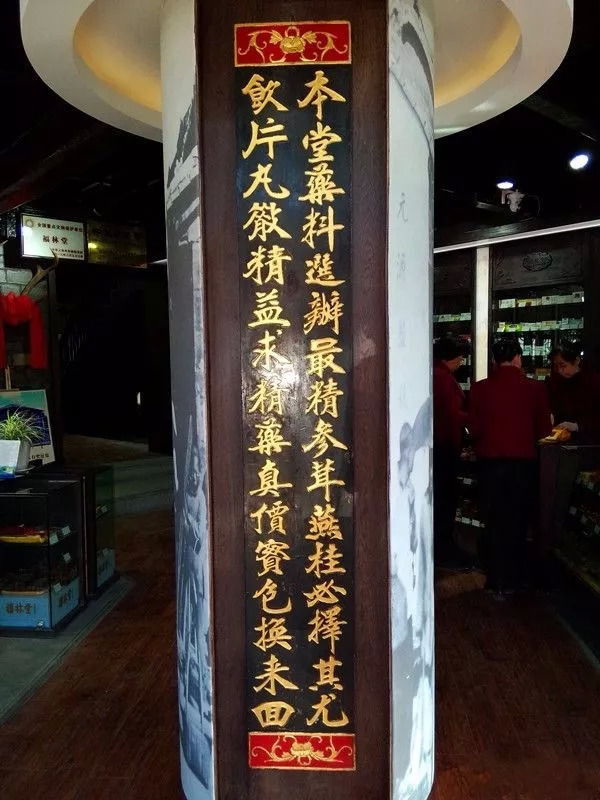 本堂藥料選辦最精參茸燕桂必擇其尤
飲片丸散精益求精藥真價實包換来回
福林堂
福林堂